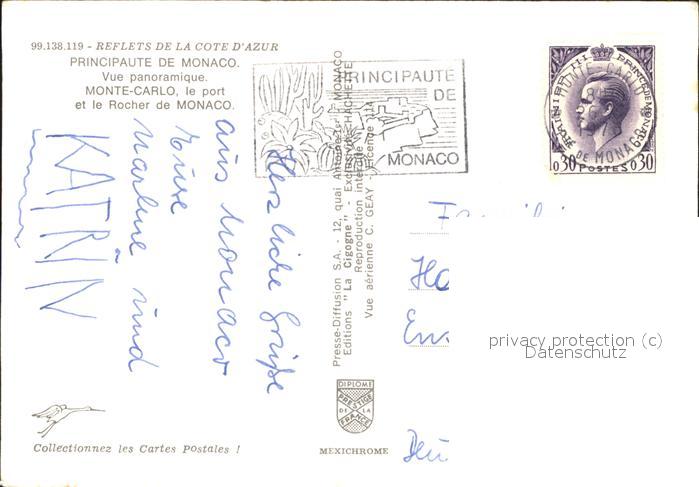 99.138.119 - REFLETS DE LA COTE D'AZUR
PRINCIPAUTE DE MONACO.
Vue panoramique.
MONTE-CARLO, le port
et le Rocher de MONACO.
Herzliche Grüße
aus Monaco
Eure
Marlene und
KATRIN
PRINCIPAUTÉ
DE
MONACO
Presse-Diffusion S.A. - 12, quai Antoine-1er - MONACO
Editions "La Cigogne" - Exclusivité HACHETTE
Reproduction interdite
Vue aérienne C. GEAY - Licence
RAINIER III PRINCE DE MONACO
MONTE-CARLO
Pté DE MONACO
0,30 POSTES 0,30
Familie
Ha
privacy protection (c)
Datenschutz
DIPLOME
PRESTIGE
DE LA
FRANCE
MEXICHROME
Collectionnez les Cartes Postales !